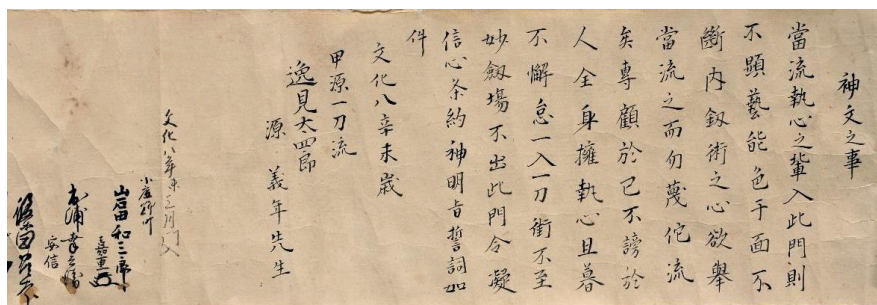 神文之事
當流執心之輩入此門則
不顕藝能色于面不
断内釼術之心欲舉
當流之而勿蔑佗流
矣專顧於己不謗於
人全身擁執心且暮
不懈怠一入一刀術不至
妙釼場不出此門令凝
信心条約神明旨誓詞如
件
文化八辛未歳
甲源一刀流
逸見太四郎
源 義年先生
文化八辛未三月 入
小鹿野町
山田和三郎
嘉重
本浦幸
安信